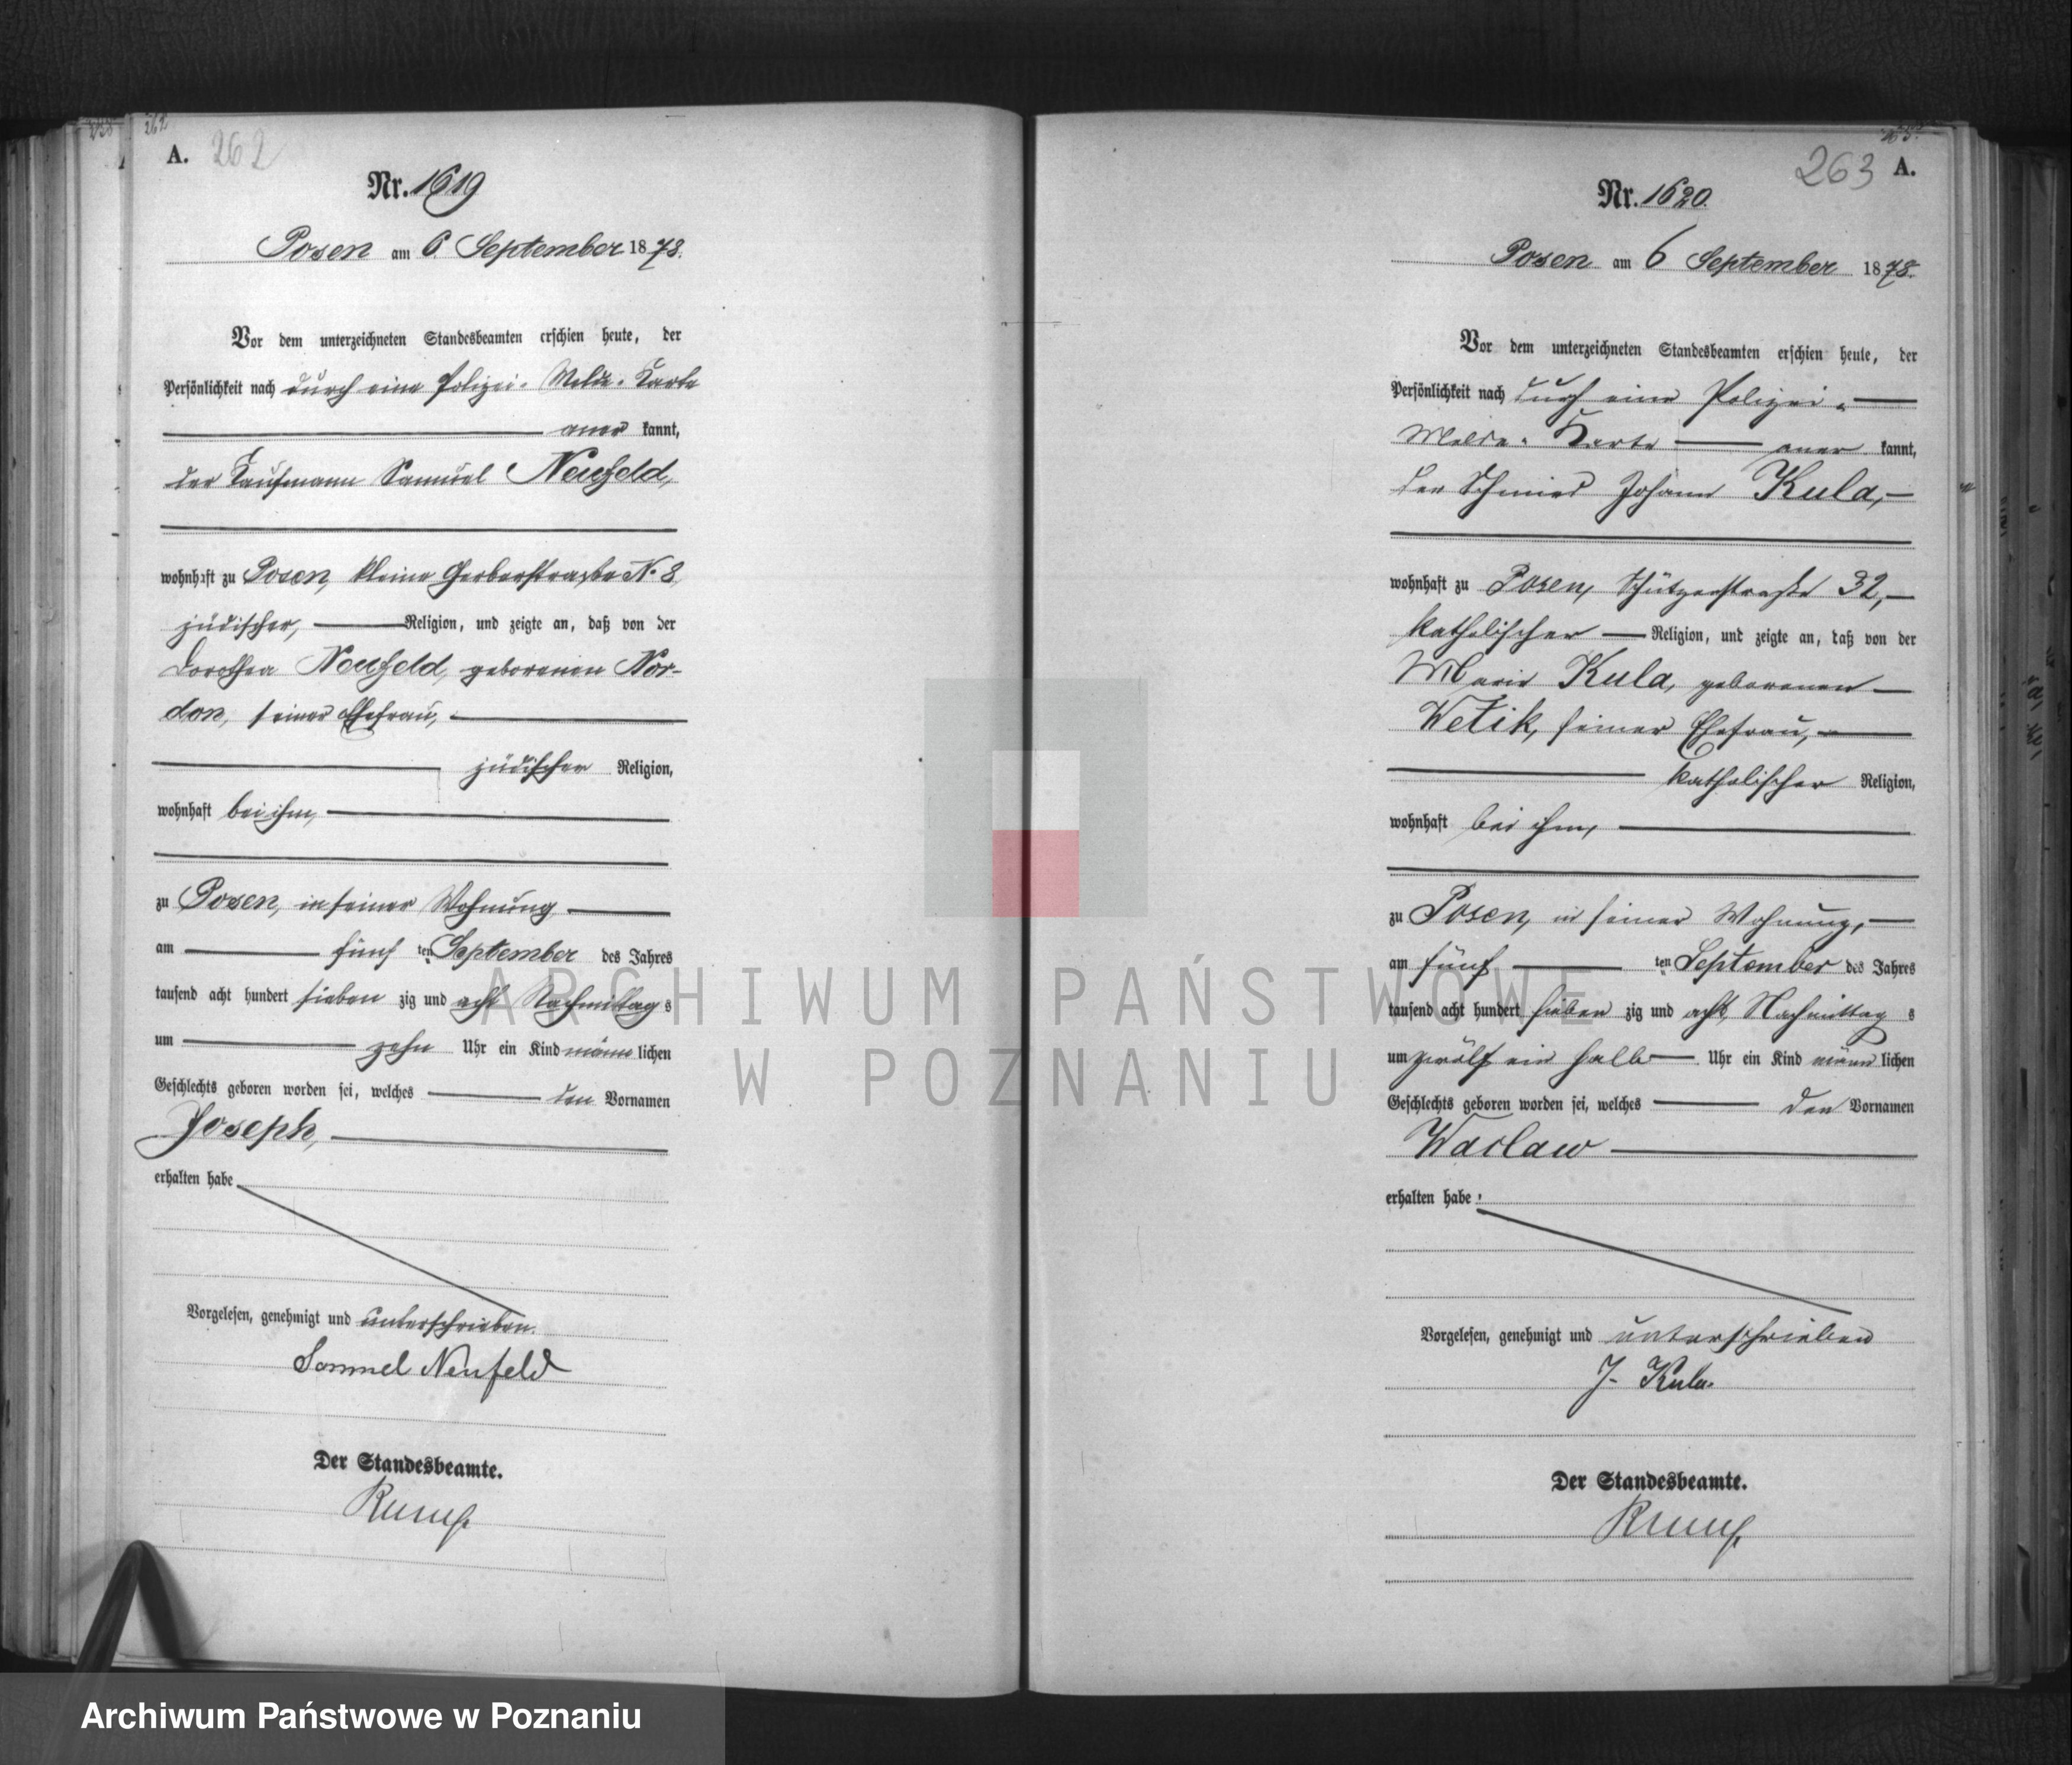 A. 262
Nr. 1619
Posen am 6. September 1878.
Vor dem unterzeichneten Standesbeamten erschien heute, der
Persönlichkeit nach durch eine Polizei-Melde-Karte
aner kannt,
der Kaufmann Samuel Neufeld,
wohnhaft zu Posen, kleine Gerberstraße N. 8
jüdischer, Religion, und zeigte an, daß von der
Dorothea Neufeld, geborenen Nor-
don, seiner Ehefrau,
jüdischer Religion,
wohnhaft bei ihm,
zu Posen, in seiner Wohnung
am fünf ten September des Jahres
tausend acht hundert sieben zig und acht Nachmittag s
um zehn Uhr ein Kind männ lichen
Geschlechts geboren worden sei, welches den Vornamen
Joseph,
erhalten habe
Vorgelesen, genehmigt und unterschrieben.
Samuel Neufeld
Der Standesbeamte.
263 A.
Nr. 1620.
Posen am 6 September 1878.
Vor dem unterzeichneten Standesbeamten erschien heute, der
Persönlichkeit nach durch eine Polizei-
Melde-Karte aner kannt,
der Schmied Johann Kula,
wohnhaft zu Posen, Schützenstraße 32,
katholischer Religion, und zeigte an, daß von der
Marie Kula, geborenen
Wetik, seiner Ehefrau,
katholischer Religion,
wohnhaft bei ihm,
zu Posen, in seiner Wohnung,
am fünf ten September des Jahres
tausend acht hundert sieben zig und acht, Nachmittag s
um zwölf ein halb Uhr ein Kind männ lichen
Geschlechts geboren worden sei, welches den Vornamen
Waclaw
erhalten habe
Vorgelesen, genehmigt und unterschrieben
J. Kula.
Der Standesbeamte.
ARCHIWUM PAŃSTWOWE
W POZNANIU
Archiwum Państwowe w Poznaniu